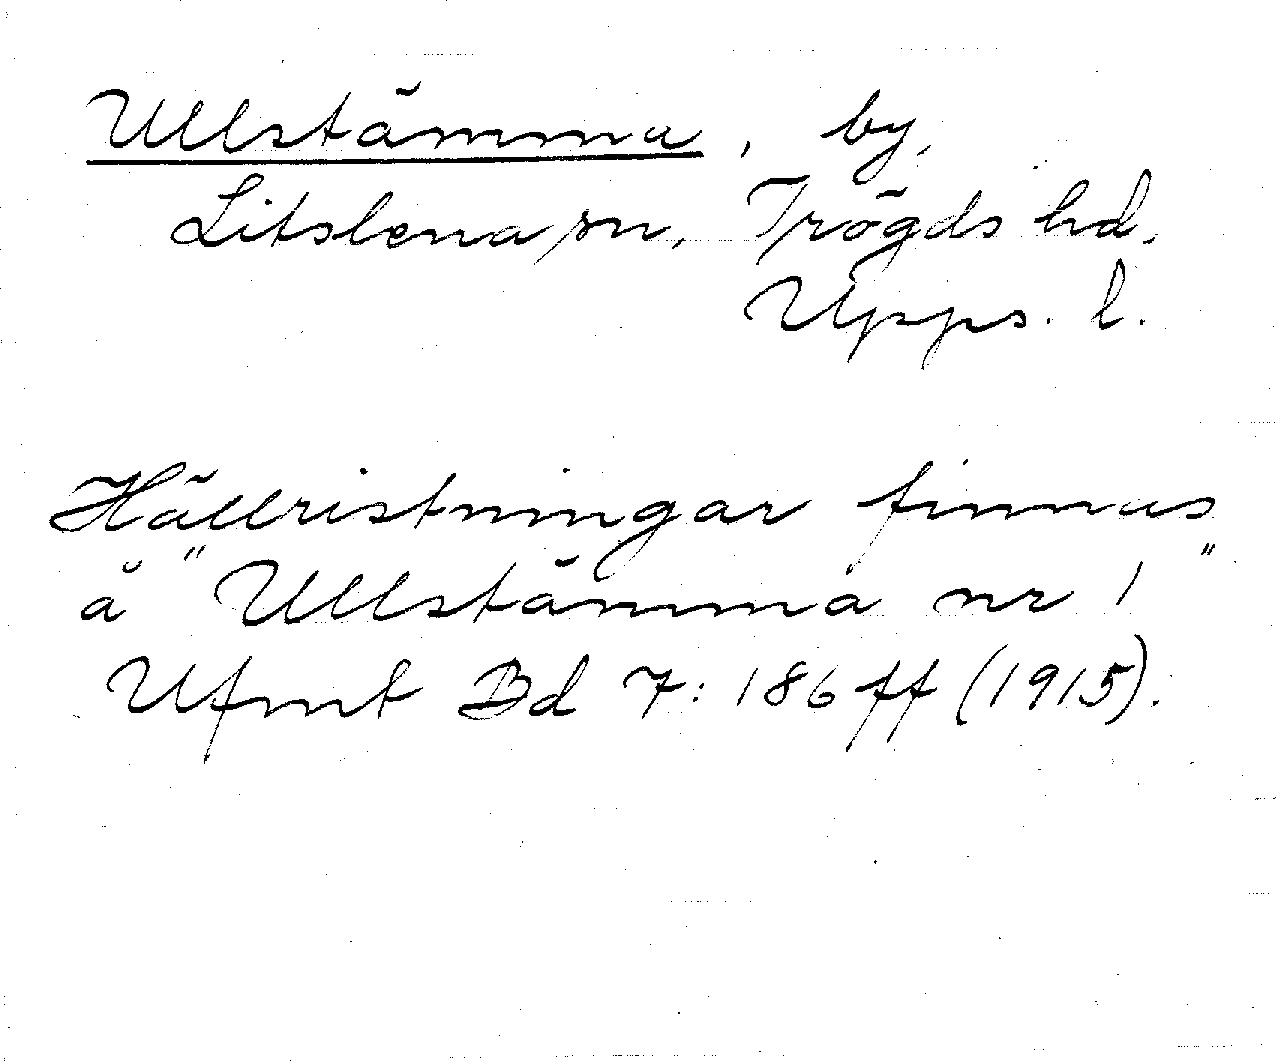 Ullstämma, by,
Litslena sn, Trögds hd,
Upps. l.
Hällristningar finnas
å "Ullstämma nr 1"
Ufmt Bd 7: 186 ff (1915).